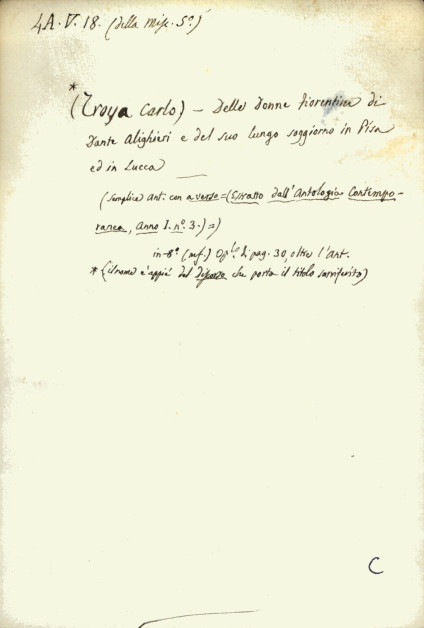 4A. V. 18. (della Misc. 5ª)
*
(Troya Carlo) – Delle Donne fiorentine di
Dante Alighieri e del suo lungo soggiorno in Pisa
ed in Lucca
(semplice Ant. con a verso = (Estratto dall'Antologia Contempo-
ranea, Anno I. nº. 3.) =)
in-8º (mf.) Opˡᵒ. di pag. 30, oltre l'ant.
* (il nome è appiè del discorso che porta il titolo surriferito)
C